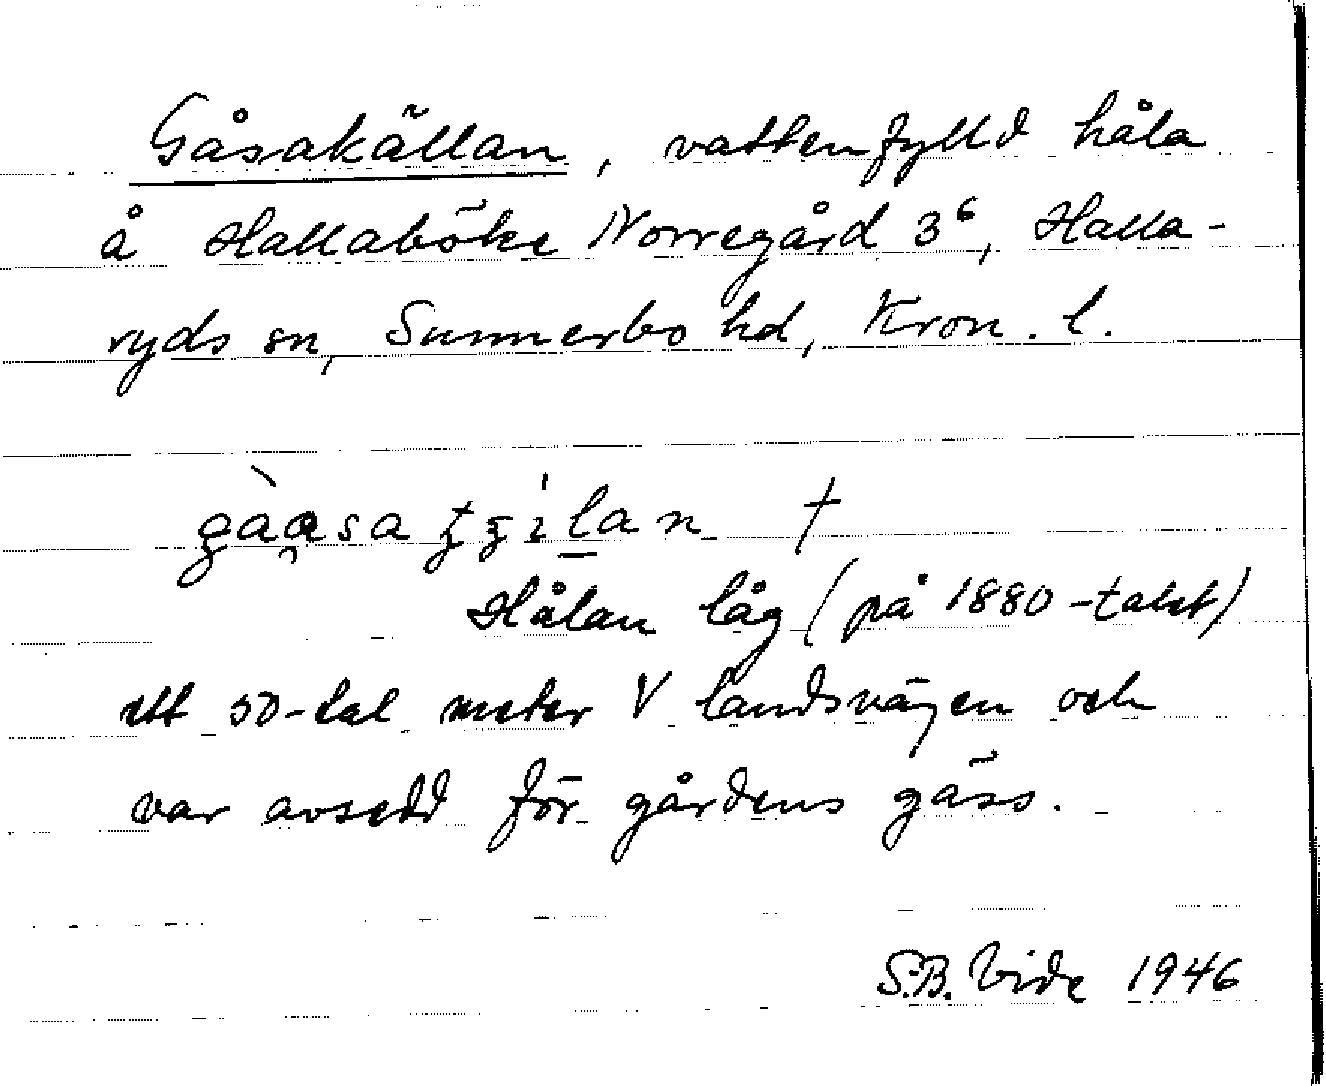 Gåsakällan, vattenfylld håla
å Hallaböke Norregård 3⁶, Halla-
ryds sn, Sunnerbo hd, Kron. l.
†
Hålan låg (på 1880-talet)
ett 50-tal meter V landsvägen och
var avsedd för gårdens gäss.
S.B. Vide 1946